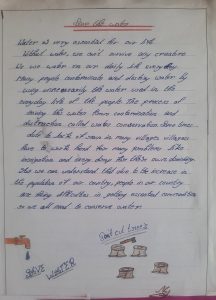 Save the water
Water is very essential for our life
Without water, we can't survive any creature
We use water in our daily life everyday
Many people contaminate and dirting water by
using unnecessarily the water used in the
everyday life of the people. The process of
saving the water from contamination and
distruction called water conservation. Some times
due to lack of rain in many villages villagers
have to work hard their many problems like
irrigation and every things for their own
Like we can understand that due to the increase in
the population of our country, people in our country
are facing difficulties in getting essential commodities
so we all need to conserve water.
SAVE
WATER